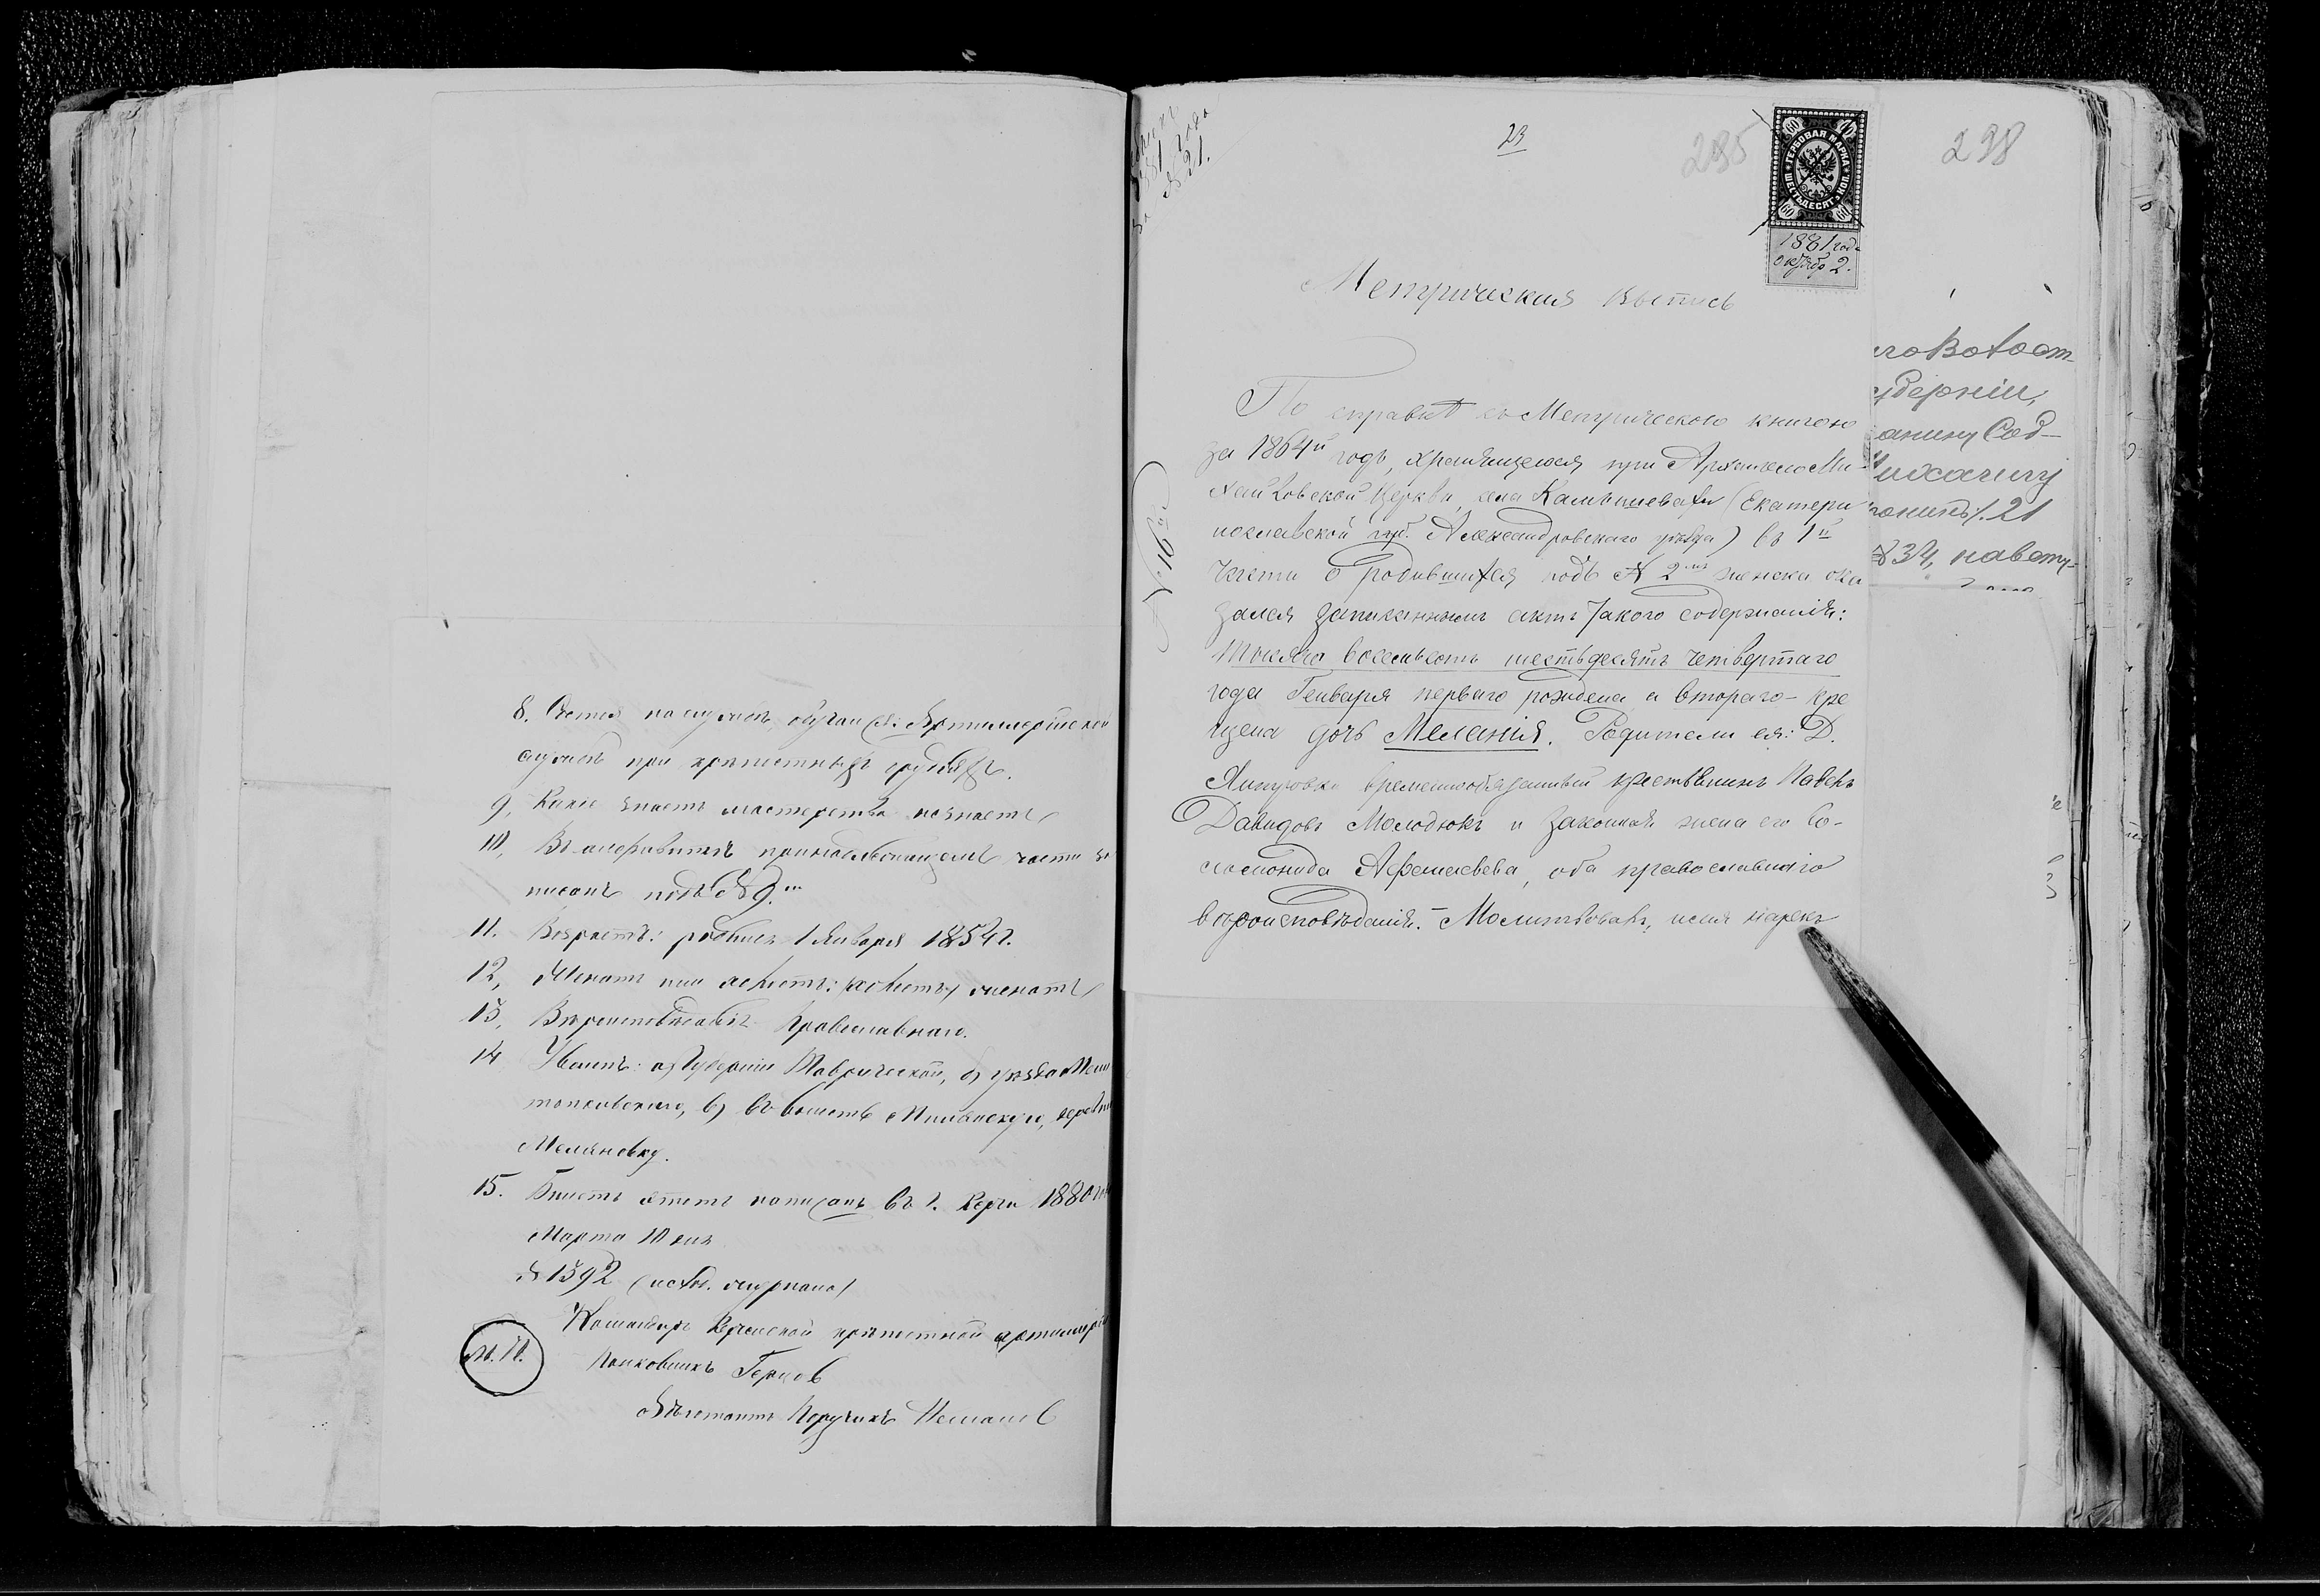 8. Состоя на службѣ, обучался: Артиллерійской
службѣ при крѣпостныхъ орудіяхъ.
9, Какіе знаетъ мастерства незнаетъ
10, Въ алфавитѣ части за
писанъ подъ № 9.мъ
11. Возрастъ: родился 1 Января 1854 г.
12, Женатъ или холостъ: (холостъ) женатъ
13, Вѣроисповѣданія Православнаго.
14 Уволенъ: а) Губерніи Таврической, б) уѣзда Мели
топольскаго, в) въ волость деревню
15. Билетъ этотъ написанъ въ г. Керчи 1880 го
Марта 10 дня
№ 1392 (исход. журнала)
Командиръ Керченской крѣпостной артиллеріи
М. П.
Полковникъ
Адъютантъ Поручикъ
1881 года
№ 21.
23
295
298
60
ГЕРБОВАЯ МАРКА
ШЕСТЬДЕСЯТЪ КОП.
1881 года
октября 2.
Метрическая Выпись
По справкѣ съ Метрическою книгою
за 1864й годъ, хранящеюся при Архангело Ми-
хайловской Церкви, села Камышевахи (Екатери
нославской губ. Александровскаго уѣзда) въ 1й
части о родившихся подъ № 2мъ женска ока
зался записаннымъ актъ такого содержанія:
тысяча восемьсотъ шестьдесятъ четвертаго
года Генваря перваго рождена а втораго- кре
щена дочь Меланія. Родители ея: Д.
временнообязанный крестьянинъ Павелъ
Давидовъ Молодюкъ и законная жена его Со-
ломонида Афанасьева, оба православнаго
вѣроисповѣданія. Молитвовалъ, имя нарекъ
№ 169
губерніи,
21
34,